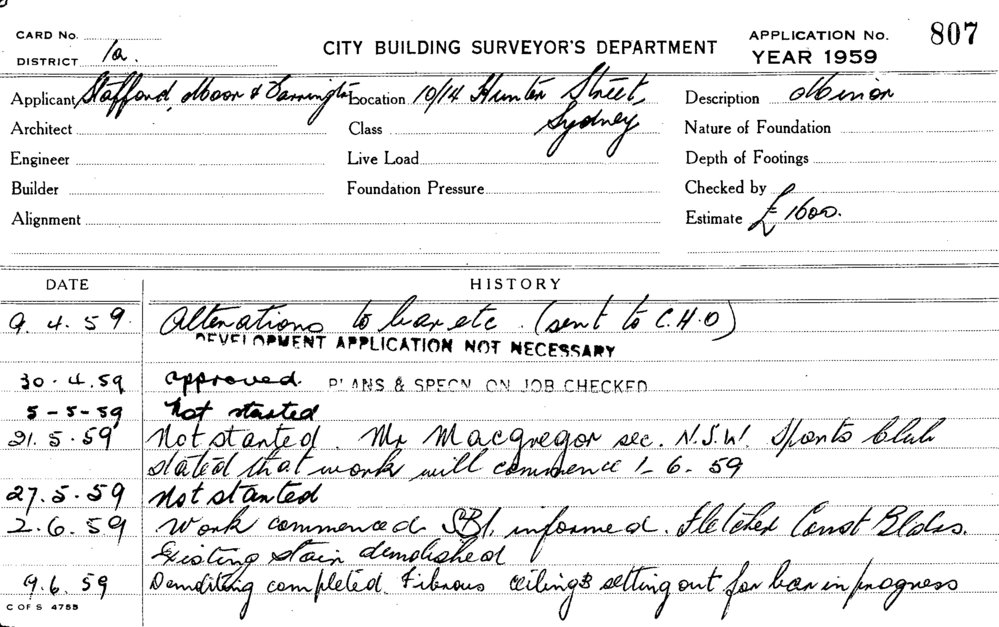 CARD No.
DISTRICT 1a.
CITY BUILDING SURVEYOR'S DEPARTMENT
APPLICATION No. 807
YEAR 1959
Applicant Stafford, Moor & Farrington Location 10/14 Hunter Street, Sydney Description Minor
Architect Class Nature of Foundation
Engineer Live Load Depth of Footings
Builder Foundation Pressure Checked by
Alignment Estimate £1600.
DATE HISTORY
9. 4. 59. Alterations to bar etc. (sent to C.H.O)
DEVELOPMENT APPLICATION NOT NECESSARY
30. 4. 59 approved. PLANS & SPECN ON JOB CHECKED
5-5-59 Not started
21. 5. 59 Not started. Mr Macgregor sec. N.S.W. Sports Club
stated that work will commence 1-6. 59
27. 5. 59 Not started
2. 6. 59 Work commenced SBI. informed. Fletcher Const Bldrs.
Existing stair demolished
9. 6. 59 completed. Fibrous ceilings setting out for bar in progress
C OF S 4755